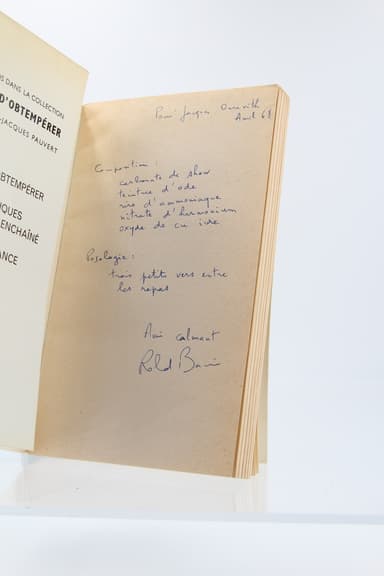 S DANS LA COLLECTION
D'OBTEMPÉRER
-JACQUES PAUVERT
BTEMPÉRER
IQUES
ENCHAÎNÉ
ANCE
Pour Jacques
Avril 68
Composition :
carbonate de show
teinture d'ode
rire d'ammoniaque
nitrate d'harmonium
oxyde de cu ivre
Posologie :
trois petits vers entre
les repas
Ami calmant